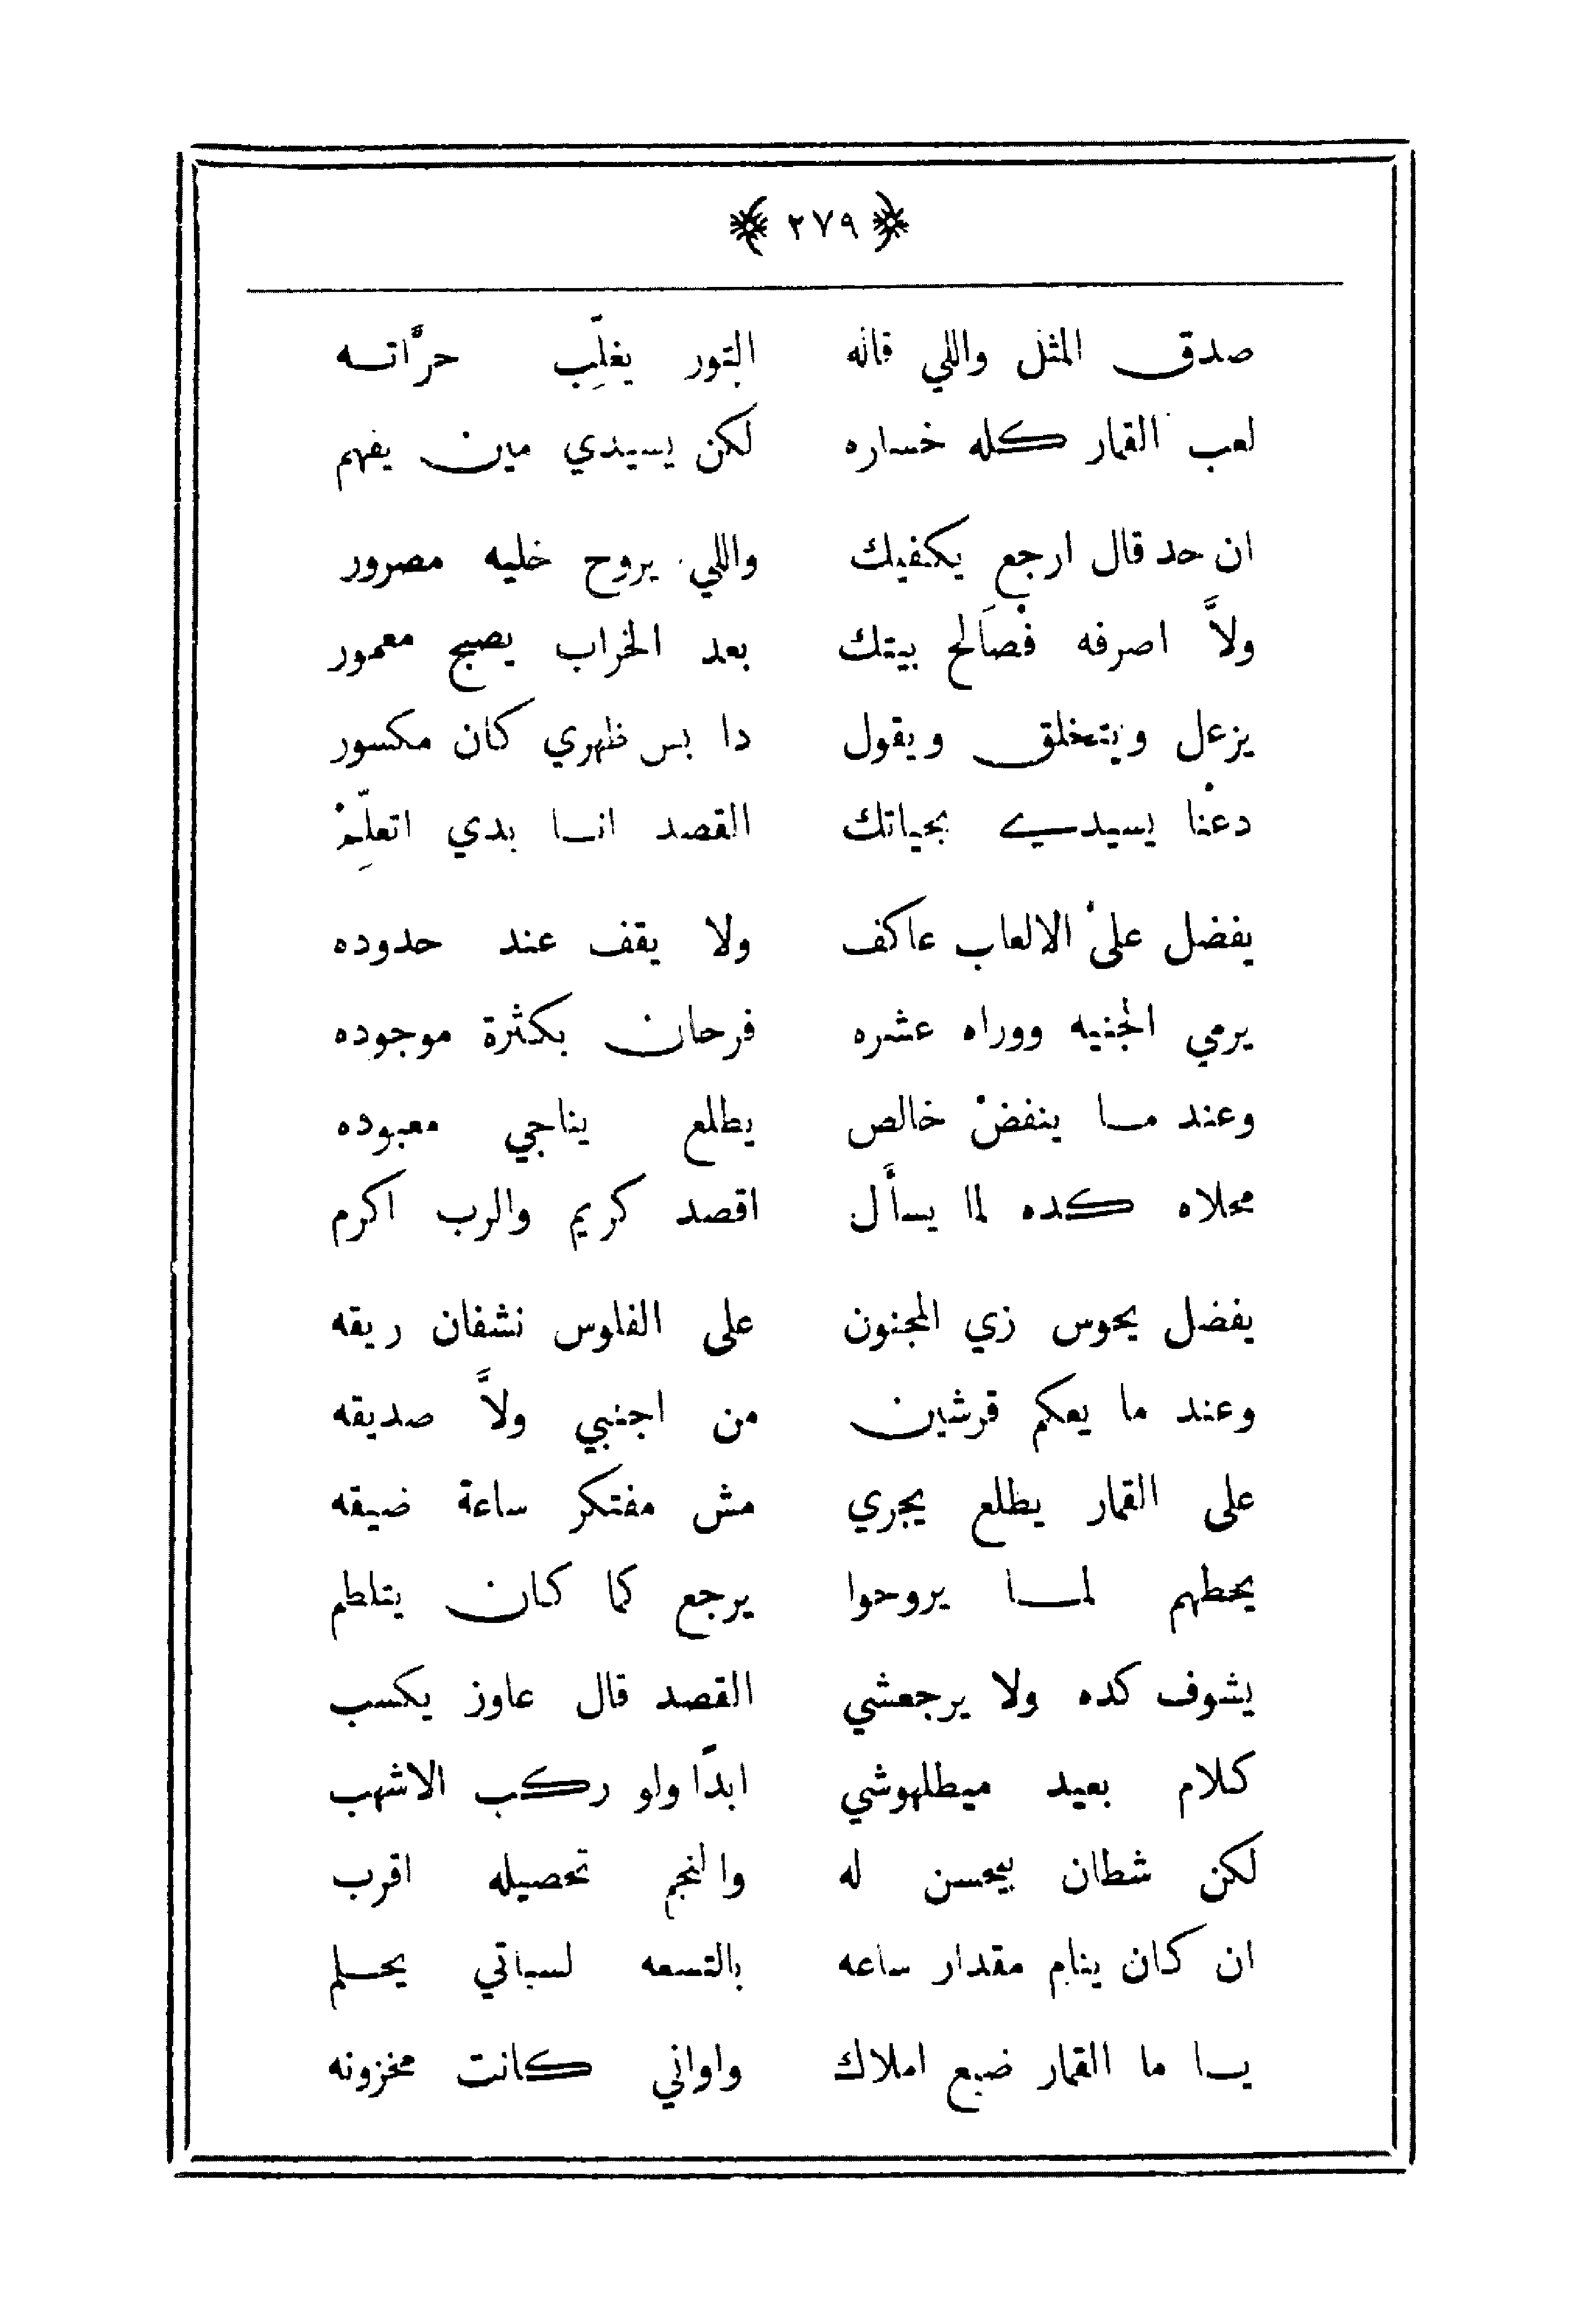 ٢٧٩
صدق المثل واللي قاله التور يغلّب حرَّاته
لعب القمار كله خساره لكن يسيدي مين يفهم
ان حد قال ارجع يكفيك واللي يروح خليه مصرور
ولاَّ اصرفه فْصَالح بيتك بعد الخراب يصبح معمور
يزعل ويتخلق ويقول دا بس ظهري كان مكسور
دعْنا يسيدي بحياتك القصد انا بدي اتعلِّمْ
يفضل علىْ الالعاب عاكف ولا يقف عند حدوده
يرمي الجنيه ووراه عشره فرحان بكثرة موجوده
وعند ما ينفضْ خالص يطلع يناجي معبوده
محلاه كده لما يسأل اقصد كريم والرب اكرم
يفضل يحوس زي المجنون على الفلوس نشفان ريقه
وعند ما يعكم قرشين من اجنبي ولاَّ صديقه
على القمار يطلع يجري مش مفتكر ساعة ضيقه
يحطهم لما يروحوا يرجع كما كان يتلطم
يشوف كده ولا يرجعشي القصد قال عاوز يكسب
كلام بعيد ميطلهوشي ابدًا ولو ركب الاشهب
لكن شطان بيحسن له والنجم تحصيله اقرب
ان كان ينام مقدار ساعه بالتسعه لسباتي يحلم
يا ما القمار ضيع املاك واواني كانت مخزونه